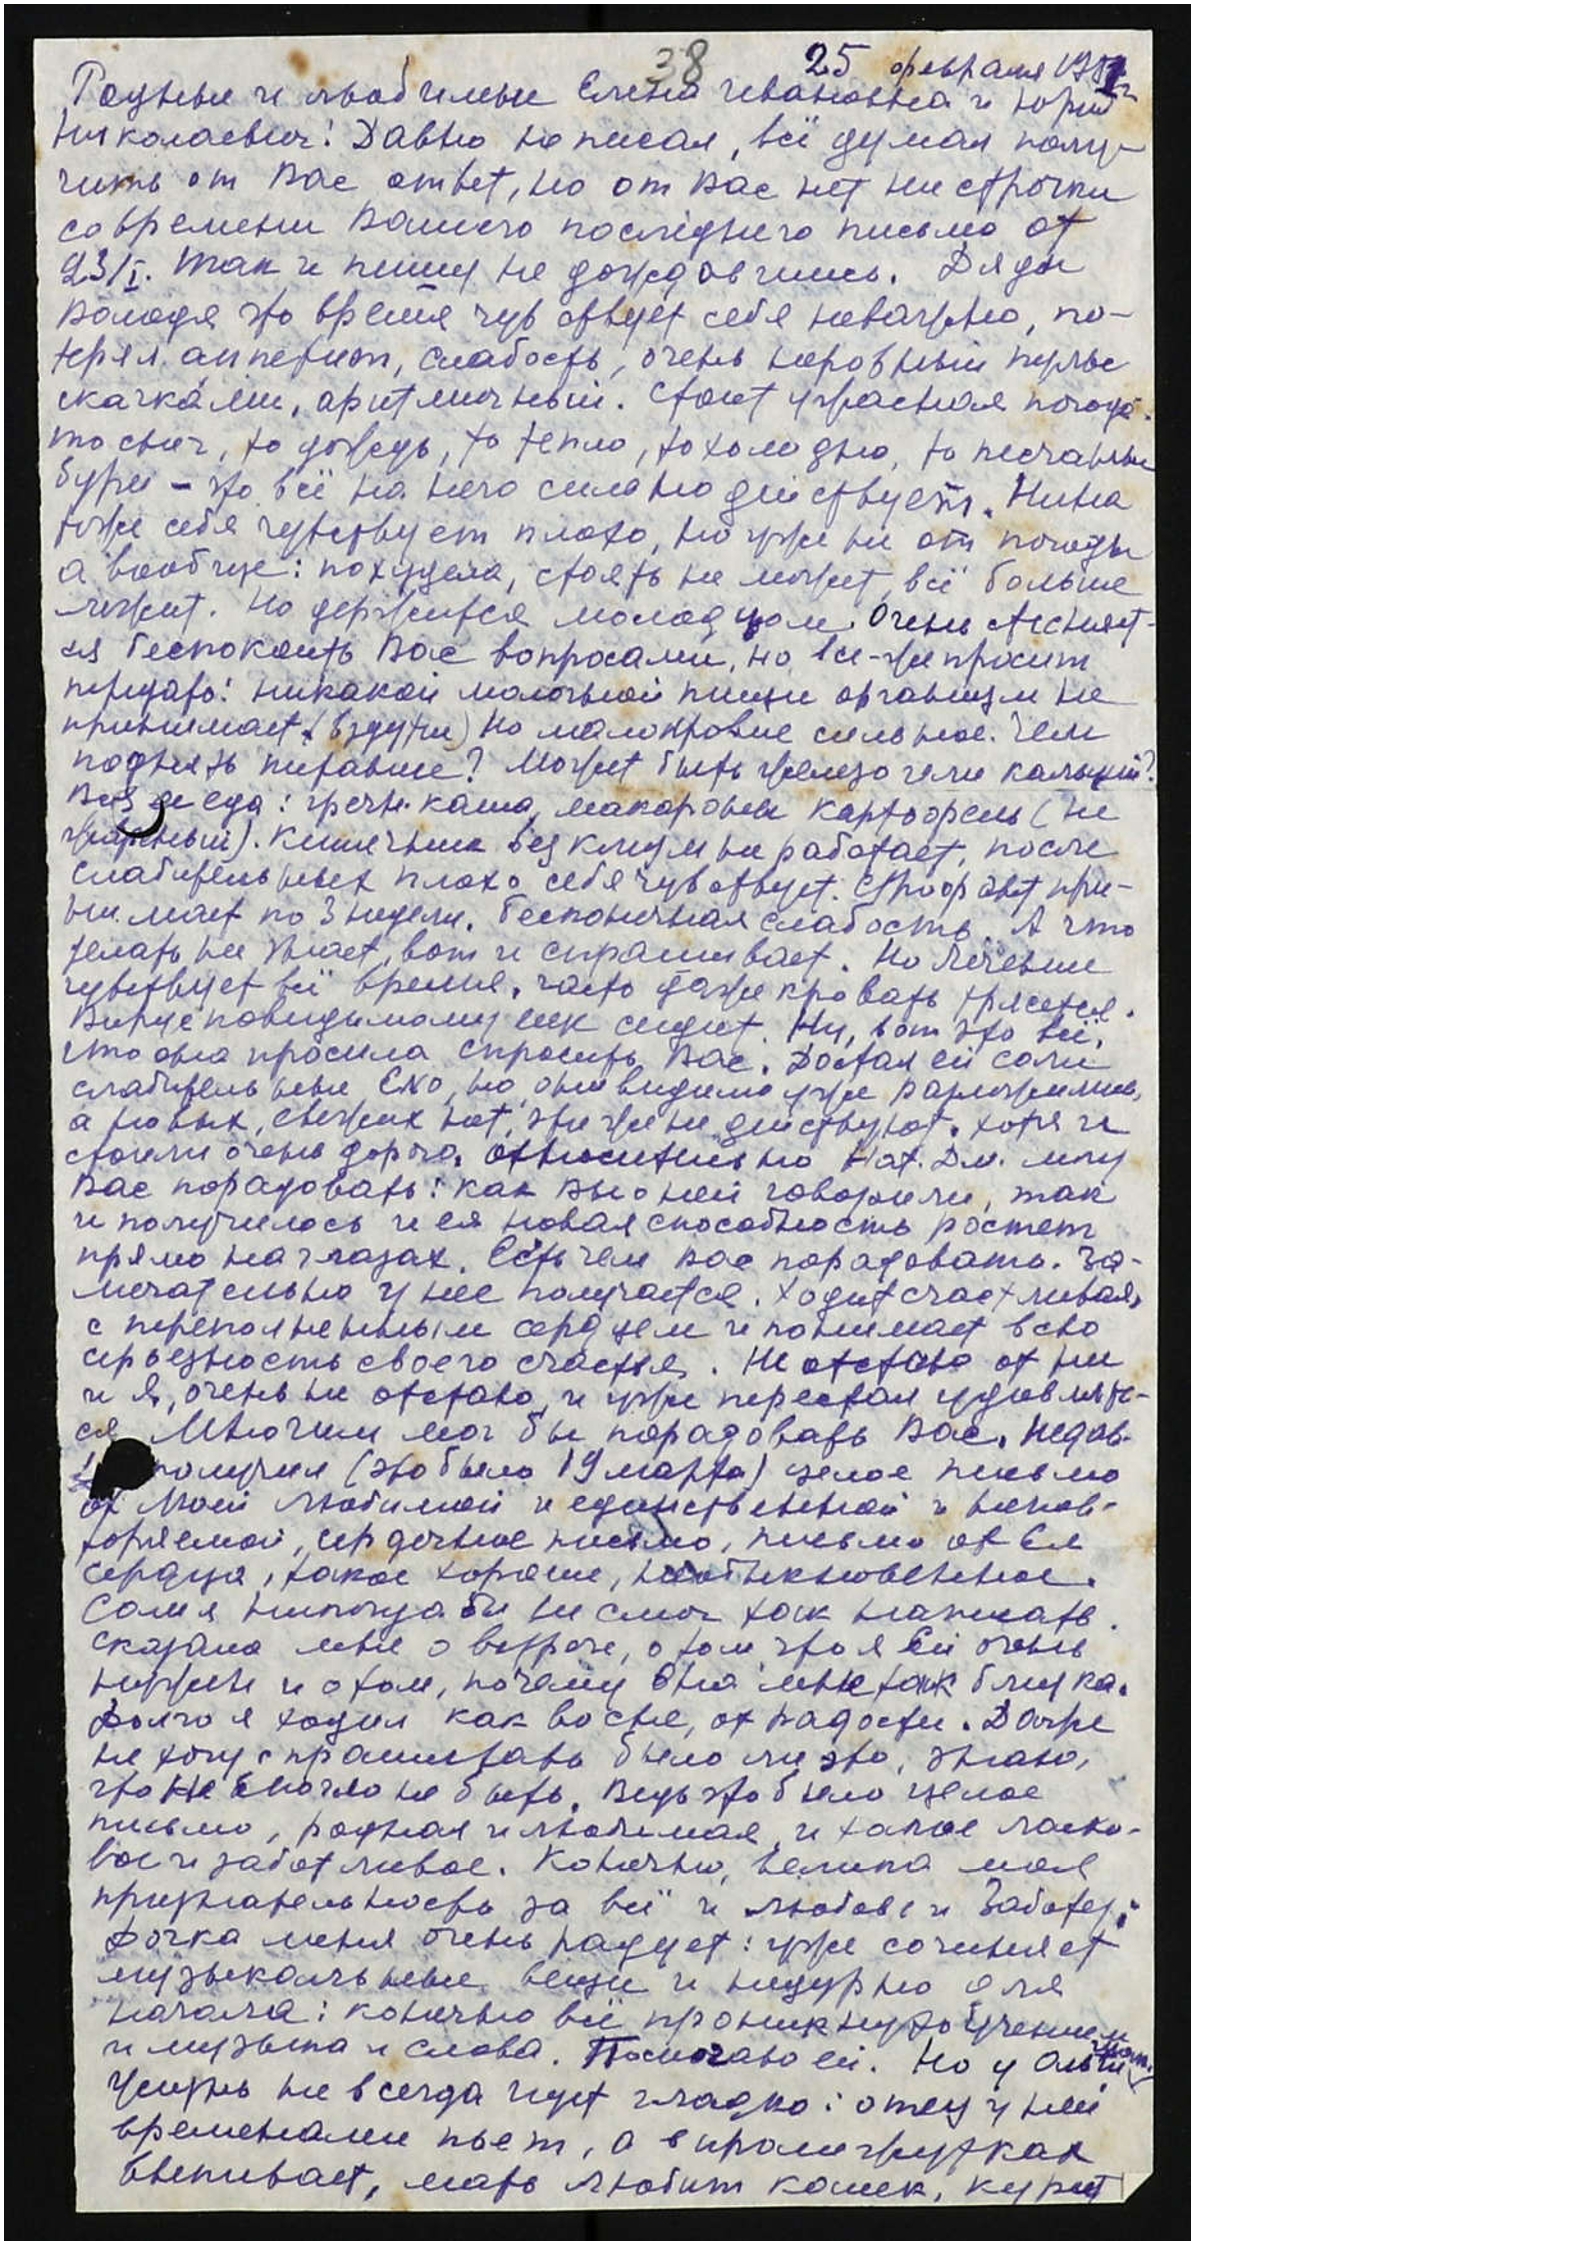 38 25 февраля 1981 г
Родные и любимые Елена Ивановна и Юрий
Николаевич! Давно не писал, всё думал полу-
чить от Вас ответ, но от Вас нет ни строчки
со времени Вашего последнего письма от
23/I. Так и пишу не дождавшись. Дядя
Володя это время чувствует себя неважно, по-
терял аппетит, слабость, очень неровный пульс
скачками, аритмичный. Стоит ужасная погода:
то снег, то дождь, то тепло, то холодно, то песчаные
бури – это всё на него сильно действует. Нина
тоже себя чувствует плохо, но уже не от погоды
а вообще: похудела, стоять не может, всё больше
лежит. Но держится молодцом. Очень стесняет-
ся беспокоить Вас вопросами, но все-же просит
передать: никакой молочной пищи организм не
принимает (вздутие) но малокровие сильное. Чем
поднять питание? Может быть железо или кальций?
Вся ее еда: гречн. каша, макароны картофель (не
жареный). Кишечник без клизм не работает, после
слабительных плохо себя чувствует. Строфант при-
нимает по 3 недели. Бесконечная слабость. А что
делать не знает, вот и спрашивает. Но лечение
чувствует всё время, часто даже кровать трясется.
Вирус повидимому еик сидит. Ну, вот это всё,
что она просила спросить Вас. Достал ей соли
слабительные ENO, но они видимо уже разложились,
а новых, свежих нет, эти же не действуют. хотя и
стоили очень дорого. Относительно Нат. Дм. могу
Вас порадовать: как Вы о ней говорили, так
и получилось и ея новая способность ростет
прямо на глазах. Есть чем Вас порадовать. За-
мечательно у нее получается. Ходит счастливая,
с переполненным сердцем и понимает всю
серьезность своего счастья. Не отстаю от ни
и я, очень не отстаю, и уже перестал удивлять-
ся. Многим мог бы порадовать Вас. Недав-
получил (это было 19 марта) целое письмо
от Моей любимой и единственной и непов-
торяемой, сердечное письмо, письмо от Ея
сердца, такое хорошее, необыкновенное.
Сам я никогда бы не смог так написать.
Сказала мне о встрече, о том, что я Ей очень
нужен и о том, почему Она мне так близка.
Долго я ходил как во сне, от радости. Даже
не хочу спрашивать было ли это, знаю,
что Не могло не быть. Ведь это было целое
письмо, родная и любимая, и такое ласко-
вое и заботливое. Конечно, велика моя
признательность за всё и любовь и Заботу.
Дочка меня очень радует: уже сочиняет
музыкальные вещи и недурно для
начала: конечно всё проникнуто Учением
и музыка и слова. Помогаю ей. Но у Ольги
жизнь не всегда идет гладко: отец у ней
временами пьет, а в промежутках
выпивает, мать любит кошек, курит